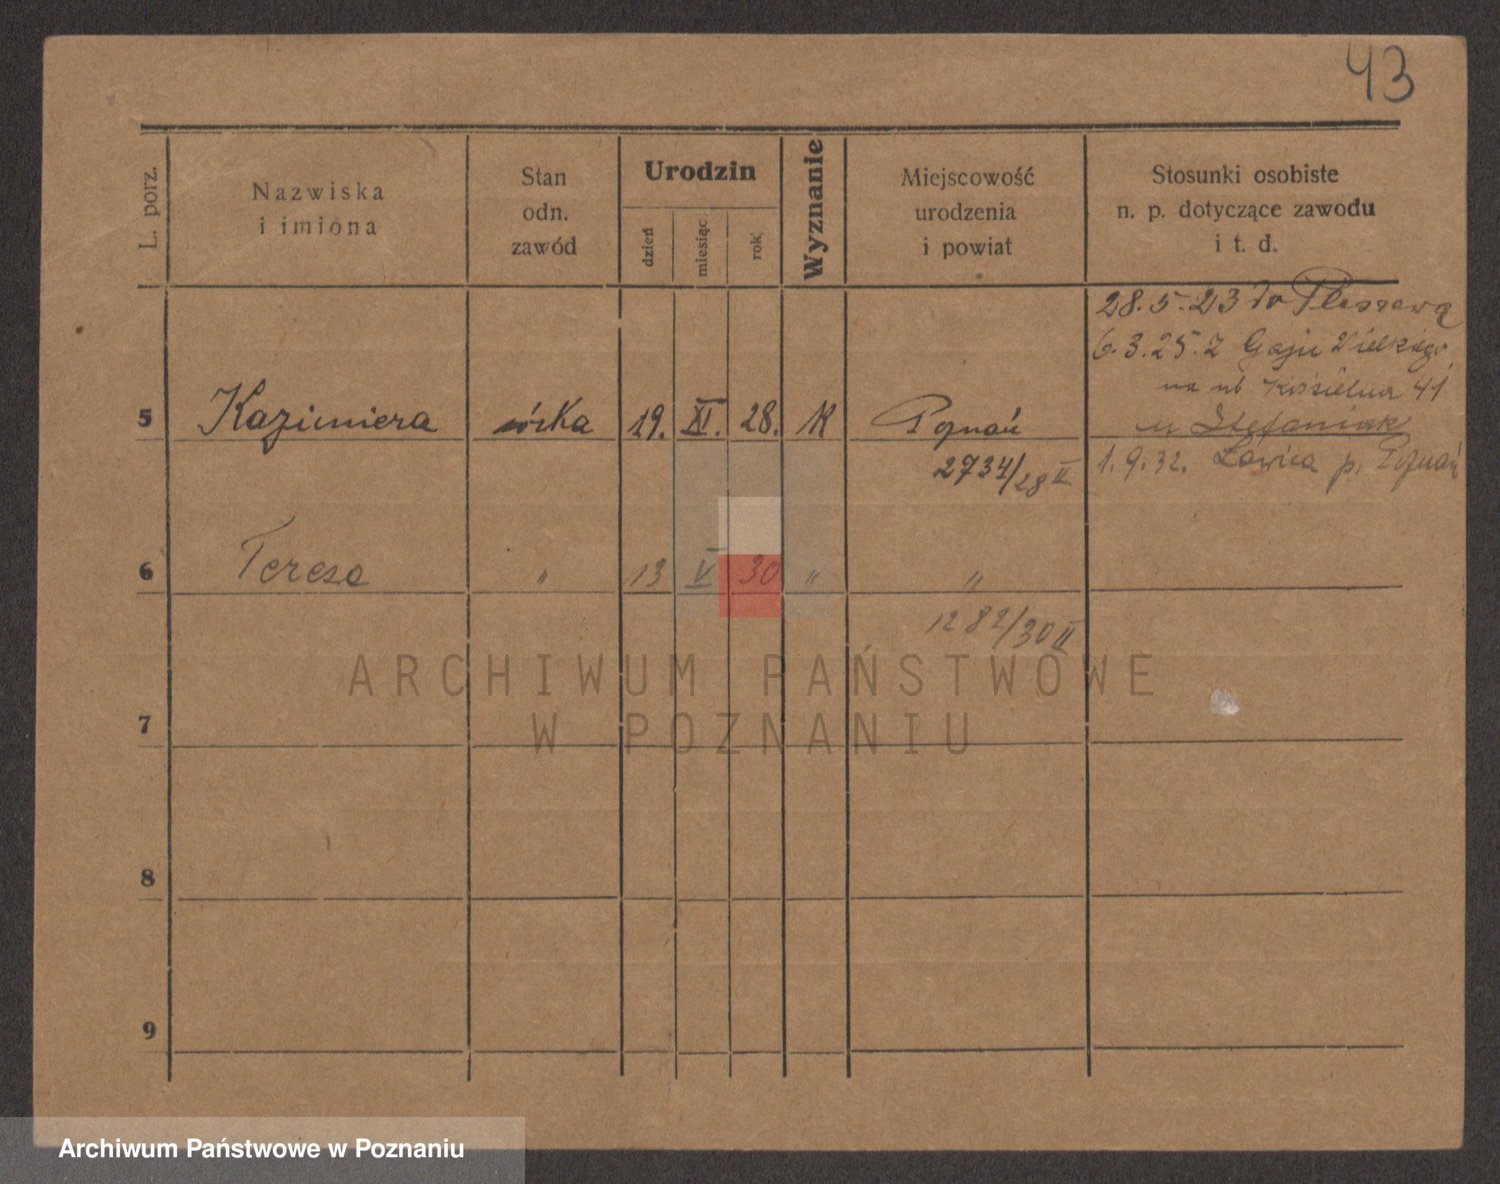 43
L. porz.
Nazwiska
i imiona
Stan
odn.
zawód
Urodzin
dzień
miesiąc
rok
Wyznanie
Miejscowość
urodzenia
i powiat
Stosunki osobiste
n. p. dotyczące zawodu
i t. d.
28.5.23 do Pleszewa
6.3.25. z Gaju Wielkiego
na ul Kościelna 41
u Stefaniak
5 Kazimiera córka 19. XI. 28. K Poznań
2734/28 II
1.9.32. Ławica p. Poznań
6 Teresa " 13 V 30 " "
1282/30 II
ARCHIWUM PAŃSTWOWE
W POZNANIU
7
8
9
Archiwum Państwowe w Poznaniu